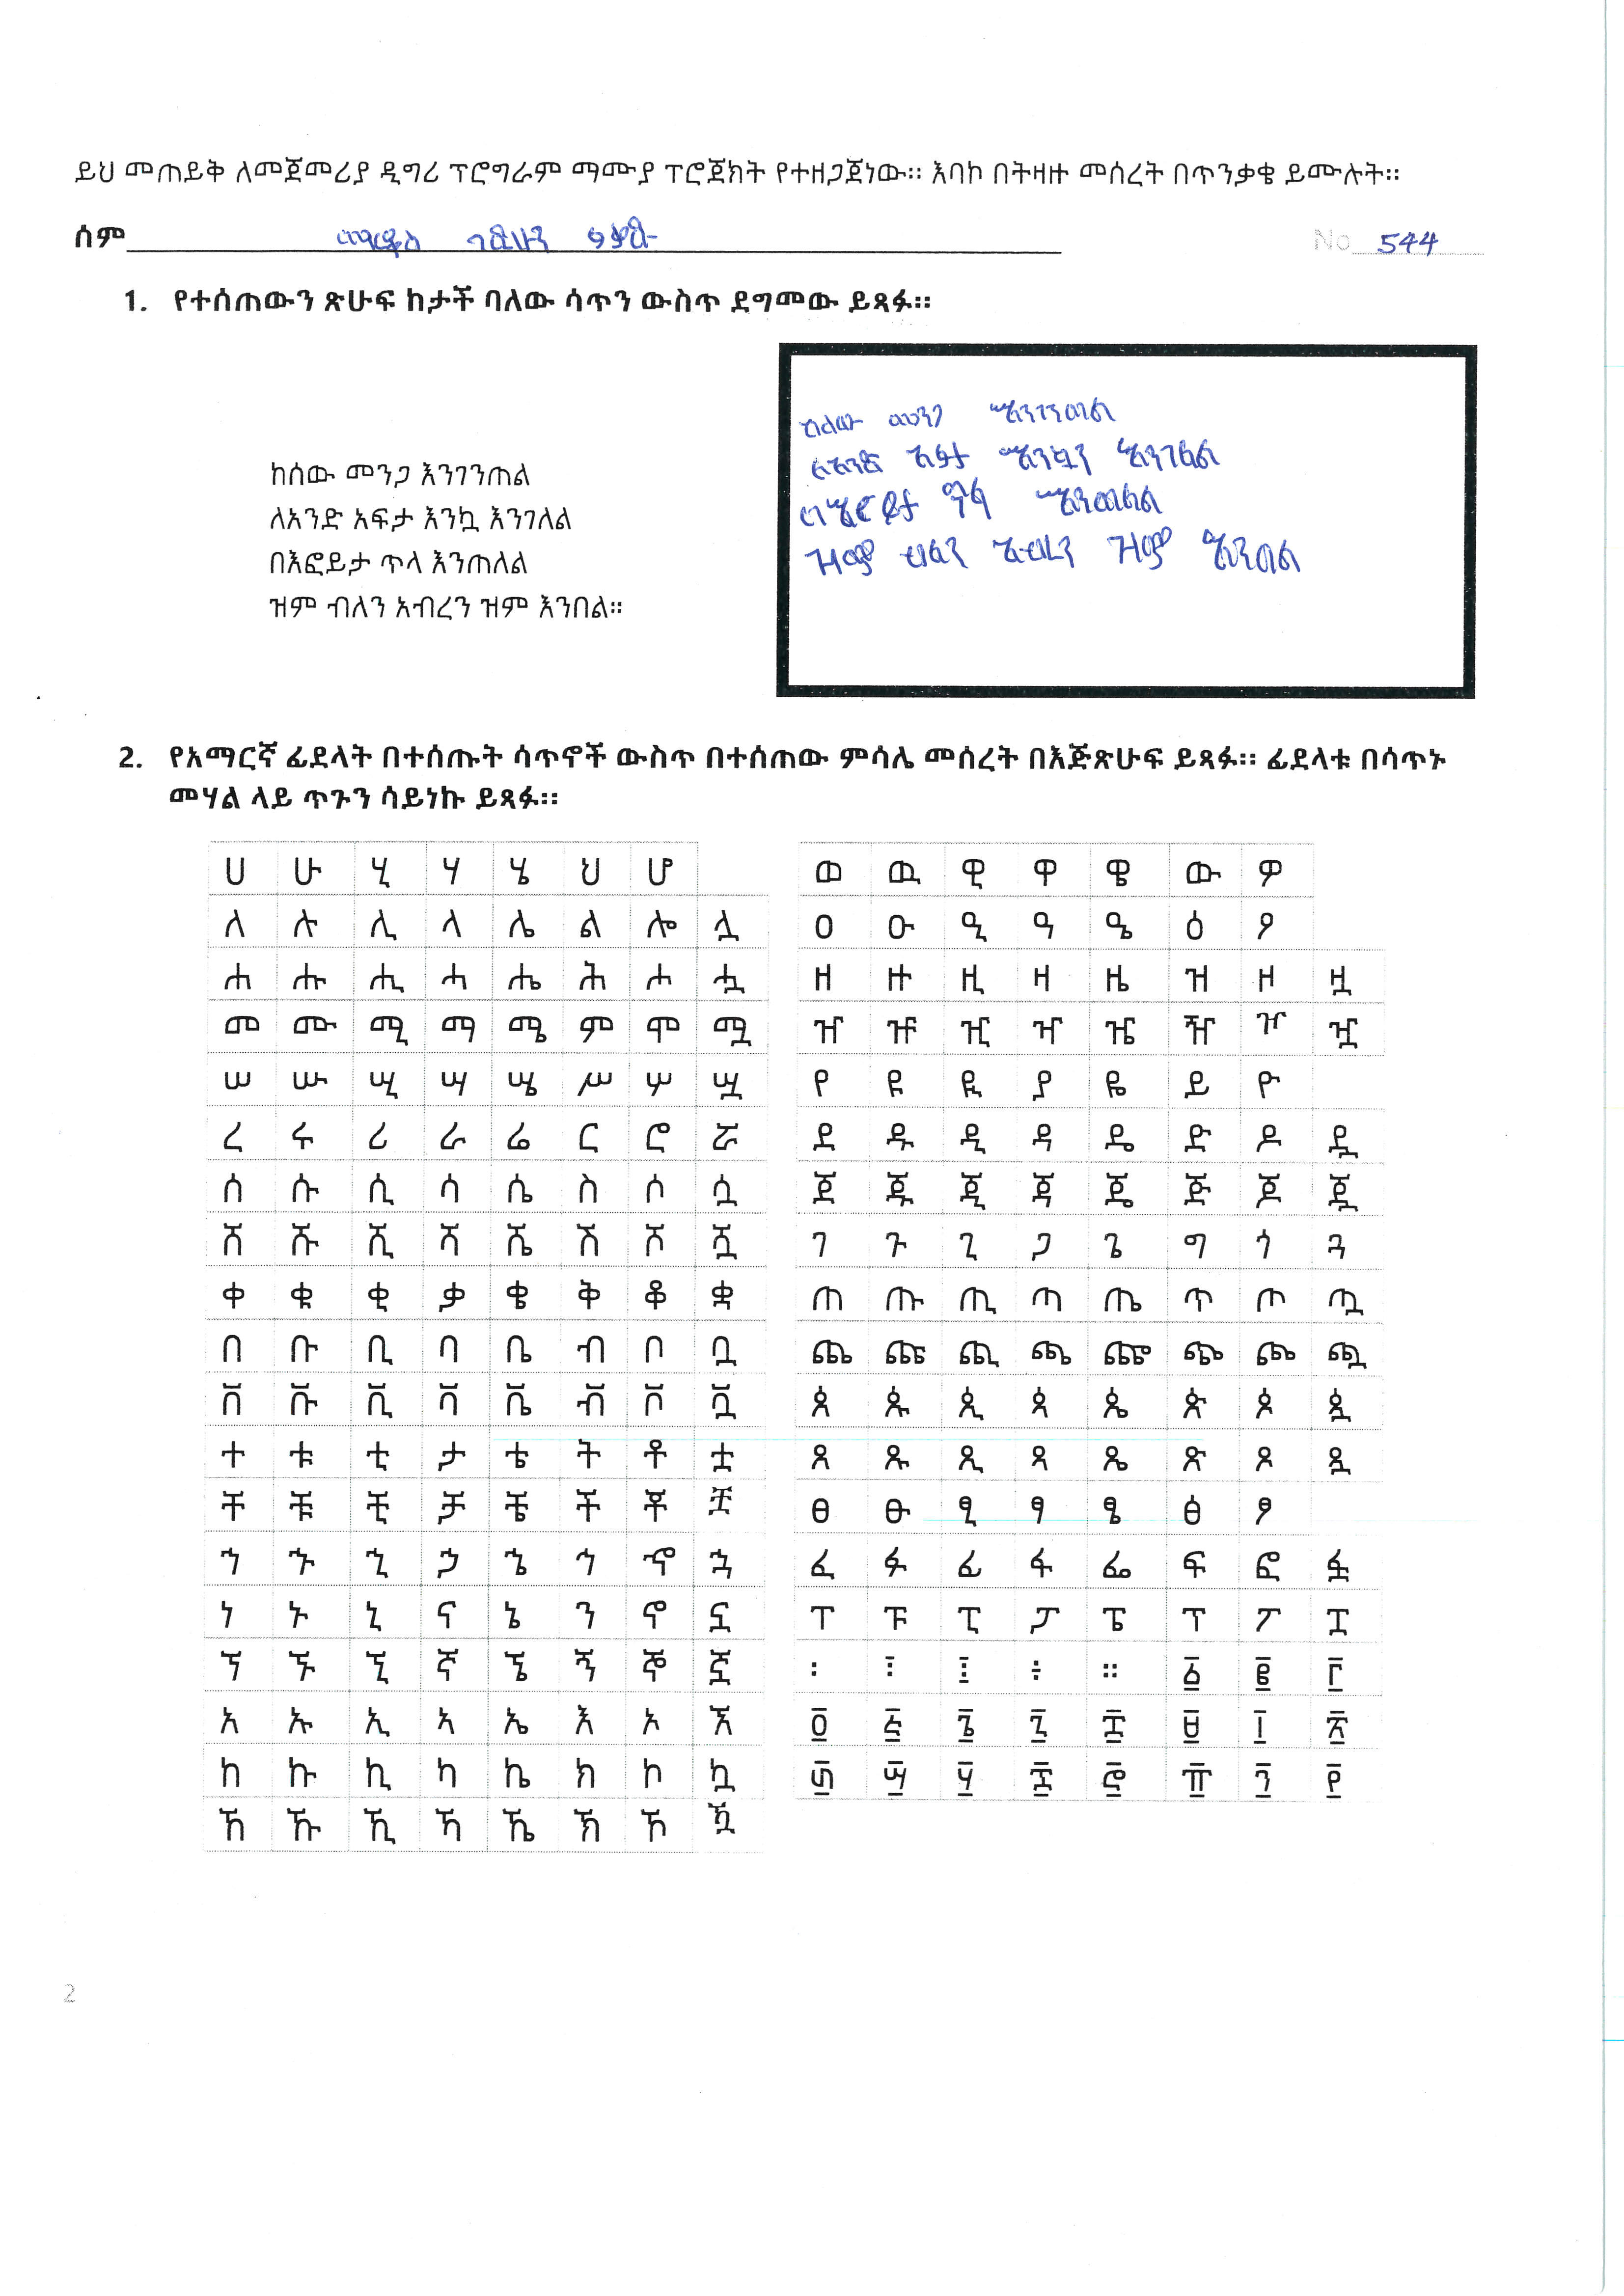 ይህ መጠይቅ ለመጀመሪያ ዲግሪ ፕሮግራም ማሙያ ፕሮጀክት የተዘጋጀነው። እባኮ በትዛዙ መሰረት በጥንቃቄ ይሙሉት።
ስም No 544
1. የተሰጠውን ጽሁፍ ከታች ባለው ሳጥን ውስጥ ደግመው ይጻፉ።
ከሰው መንጋ እንገንጠል
ለአንድ አፍታ እንኳ እንገለል
በእፎይታ ጥላ እንጠለል
ዝም ብለን አብረን ዝም እንበል።
ከሰው መንጋ እንገንጠል
ለአንድ አፍታ እንኳን እንገለል
በእፎይታ ጥላ እንጠለል
ዝም ብለን አብረን ዝም እንበል
2. የአማርኛ ፊደላት በተሰጡት ሳጥኖች ውስጥ በተሰጠው ምሳሌ መሰረት በእጅጽሁፍ ይጻፉ። ፊደላቱ በሳጥኑ
መሃል ላይ ጥጉን ሳይነኩ ይጻፉ።
ሀ ሁ ሂ ሃ ሄ ህ ሆ
ለ ሉ ሊ ላ ሌ ል ሎ ሏ
ሐ ሑ ሒ ሓ ሔ ሕ ሖ ሗ
መ ሙ ሚ ማ ሜ ም ሞ ሟ
ሠ ሡ ሢ ሣ ሤ ሥ ሦ ሧ
ረ ሩ ሪ ራ ሬ ር ሮ ሯ
ሰ ሱ ሲ ሳ ሴ ስ ሶ ሷ
ሸ ሹ ሺ ሻ ሼ ሽ ሾ ሿ
ቀ ቁ ቂ ቃ ቄ ቅ ቆ ቋ
በ ቡ ቢ ባ ቤ ብ ቦ ቧ
ቨ ቩ ቪ ቫ ቬ ቭ ቮ ቯ
ተ ቱ ቲ ታ ቴ ት ቶ ቷ
ቸ ቹ ቺ ቻ ቼ ች ቾ ቿ
ኀ ኁ ኂ ኃ ኄ ኅ ኆ ኋ
ነ ኑ ኒ ና ኔ ን ኖ ኗ
ኘ ኙ ኚ ኛ ኜ ኝ ኞ ኟ
አ ኡ ኢ ኣ ኤ እ ኦ ኧ
ከ ኩ ኪ ካ ኬ ክ ኮ ኳ
ኸ ኹ ኺ ኻ ኼ ኽ ኾ ዃ
ወ ዉ ዊ ዋ ዌ ው ዎ
ዐ ዑ ዒ ዓ ዔ ዕ ዖ
ዘ ዙ ዚ ዛ ዜ ዝ ዞ ዟ
ዠ ዡ ዢ ዣ ዤ ዥ ዦ ዧ
የ ዩ ዪ ያ ዬ ይ ዮ
ደ ዱ ዲ ዳ ዴ ድ ዶ ዷ
ጀ ጁ ጂ ጃ ጄ ጅ ጆ ጇ
ገ ጉ ጊ ጋ ጌ ግ ጎ ጓ
ጠ ጡ ጢ ጣ ጤ ጥ ጦ ጧ
ጨ ጩ ጪ ጫ ጬ ጭ ጮ ጯ
ጰ ጱ ጲ ጳ ጴ ጵ ጶ ጷ
ጸ ጹ ጺ ጻ ጼ ጽ ጾ ጿ
ፀ ፁ ፂ ፃ ፄ ፅ ፆ
ፈ ፉ ፊ ፋ ፌ ፍ ፎ ፏ
ፐ ፑ ፒ ፓ ፔ ፕ ፖ ፗ
፡ ፣ ፤ ፥ ። ፩ ፪ ፫
፬ ፭ ፮ ፯ ፰ ፱ ፲ ፳
፴ ፵ ፶ ፷ ፸ ፹ ፺ ፻
2